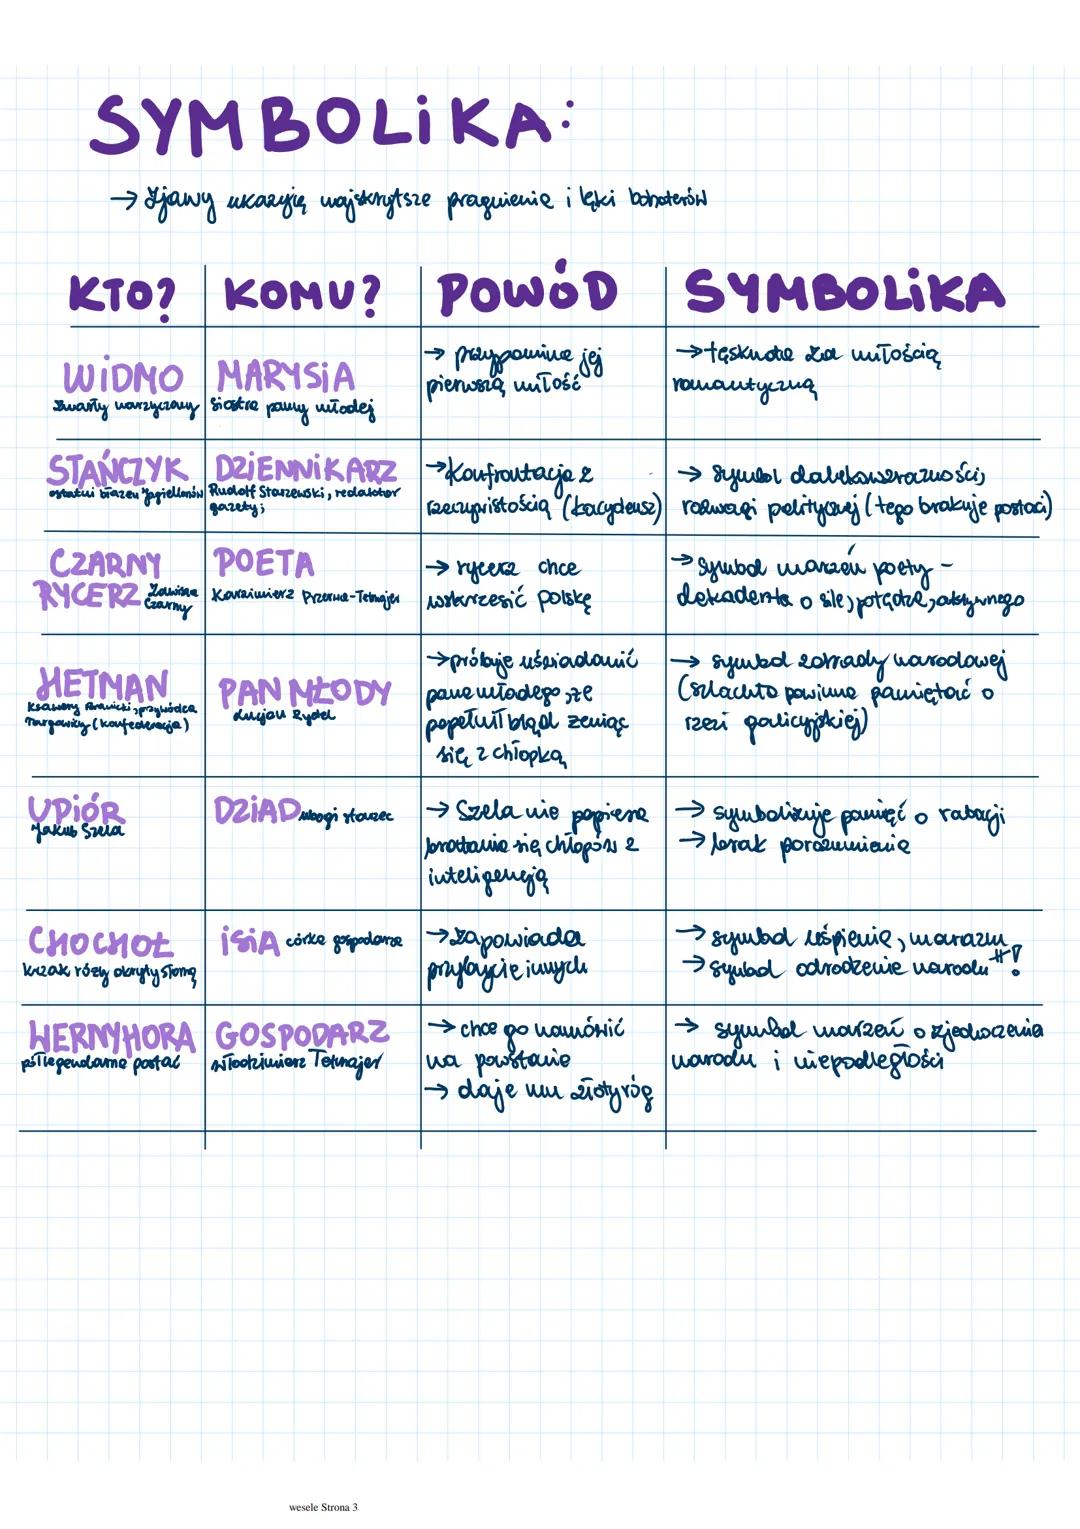 SYMBOLIKA:
→ Zjawy ukazują najskrytsze pragnienia i lęki bohaterów
KTO? KOMU? POWÓD SYMBOLIKA
WIDMO
zmarły narzyczony
MARYSIA
siostra panny młodej
→ przypomina jej
pierwszą miłość
→ tęsknota za miłością
romantyczną
STAŃCZYK
ostatni błazen Jagiellonów
DZIENNIKARZ
Rudolf Starzewski, redaktor
gazety;
→ Konfrontacja z
rzeczywistością
→ symbol dalekowzroczności,
rozwagi politycznej (tego brakuje postaci)
CZARNY
RYCERZ Zawisza
Czarny
POETA
Kazimierz Przerwa-Tetmajer
→ rycerz chce
wskrzesić Polskę
→ symbol marzeń poety -
dekadenta o sile, potędze, aktywnego
HETMAN
Ksawery Branicki, przywódca
Targowicy (Konfederacja)
PAN MŁODY
Lucjan Rydel
→ próbuje uświadomić
pana młodego, że
popełnił błąd żeniąc
się z chłopką
→ symbol zdrady narodowej
(szlachta powinna pamiętać o
rzezi galicyjskiej)
UPIÓR
Jakub Szela
DZIAD ubogi starzec
→ Szela nie popiera
bratania się chłopów z
inteligencją
→ symbolizuje pamięć o rabacji
→ brak porozumienia
CHOCHOŁ
krzak róży okryty słomą
ISIA córka gospodarza
→ zapowiada
przybycie innych
→ symbol uśpienia, marazm
→ symbol odrodzenie narodu
WERNYHORA
półlegendarna postać
GOSPODARZ
Włodzimierz Tetmajer
→ chce go namówić
na powstanie
→ daje mu złoty róg
→ symbol marzeń o zjednoczenia
narodu i niepodległości
wesele Strona 3